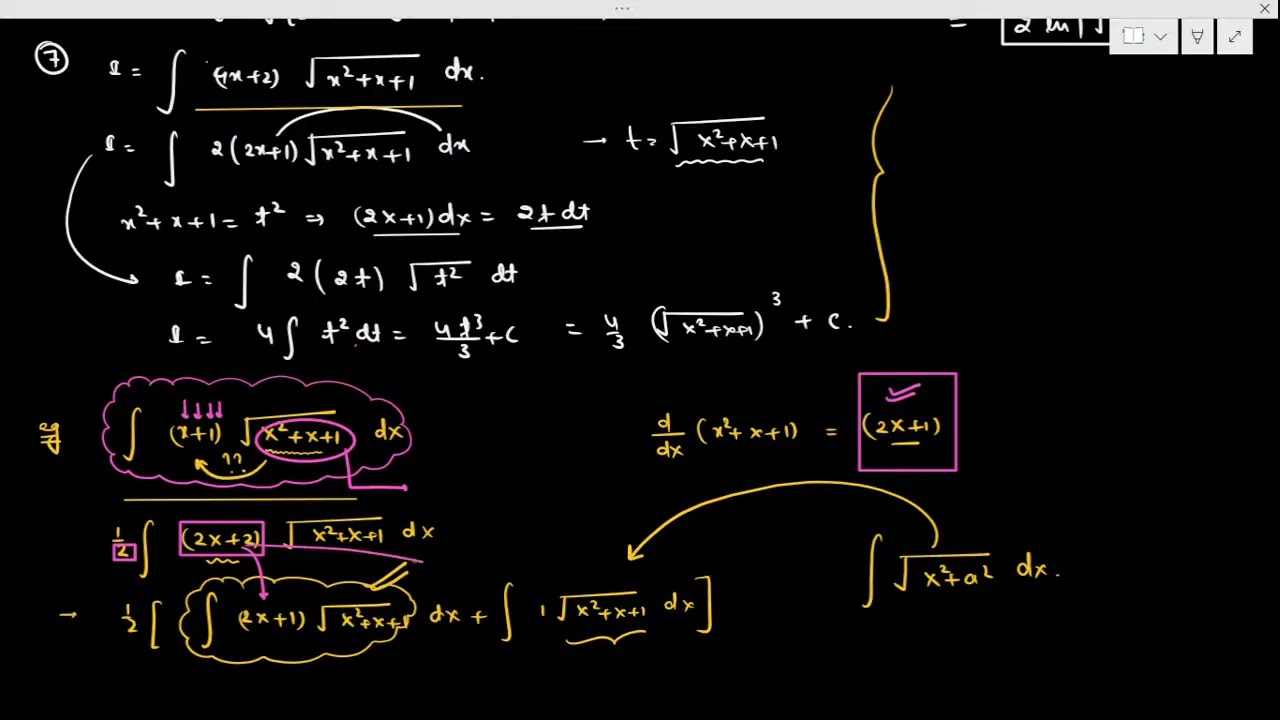 = 2 ln |√
⑦ I = ∫ (4x+2) √(x²+x+1) dx.
I = ∫ 2(2x+1) √(x²+x+1) dx → t = √(x²+x+1)
x²+x+1 = t² ⇒ (2x+1)dx = 2t dt
I = ∫ 2(2t) √(t²) dt
I = 4∫ t² dt = 4t³/3 + C = 4/3 (√(x²+x+1))³ + C.
eg ∫ (x+1) √(x²+x+1) dx d/dx (x²+x+1) = (2x+1)
??
1/2 ∫ (2x+2) √(x²+x+1) dx
∫ √(x²+a²) dx.
→ 1/2 [ ∫ (2x+1) √(x²+x+1) dx + ∫ 1 √(x²+x+1) dx ]